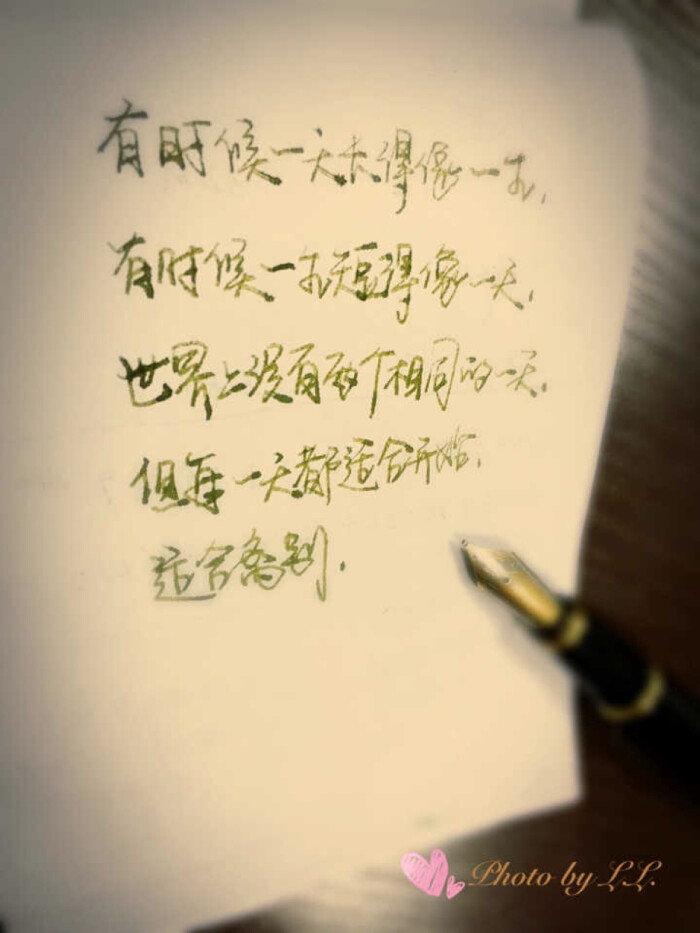 有时候一天长得像一生,
有时候一生短得像一天,
世界上没有两个相同的一天,
但每一天都适合开始,
适合离别.
Photo by LL.